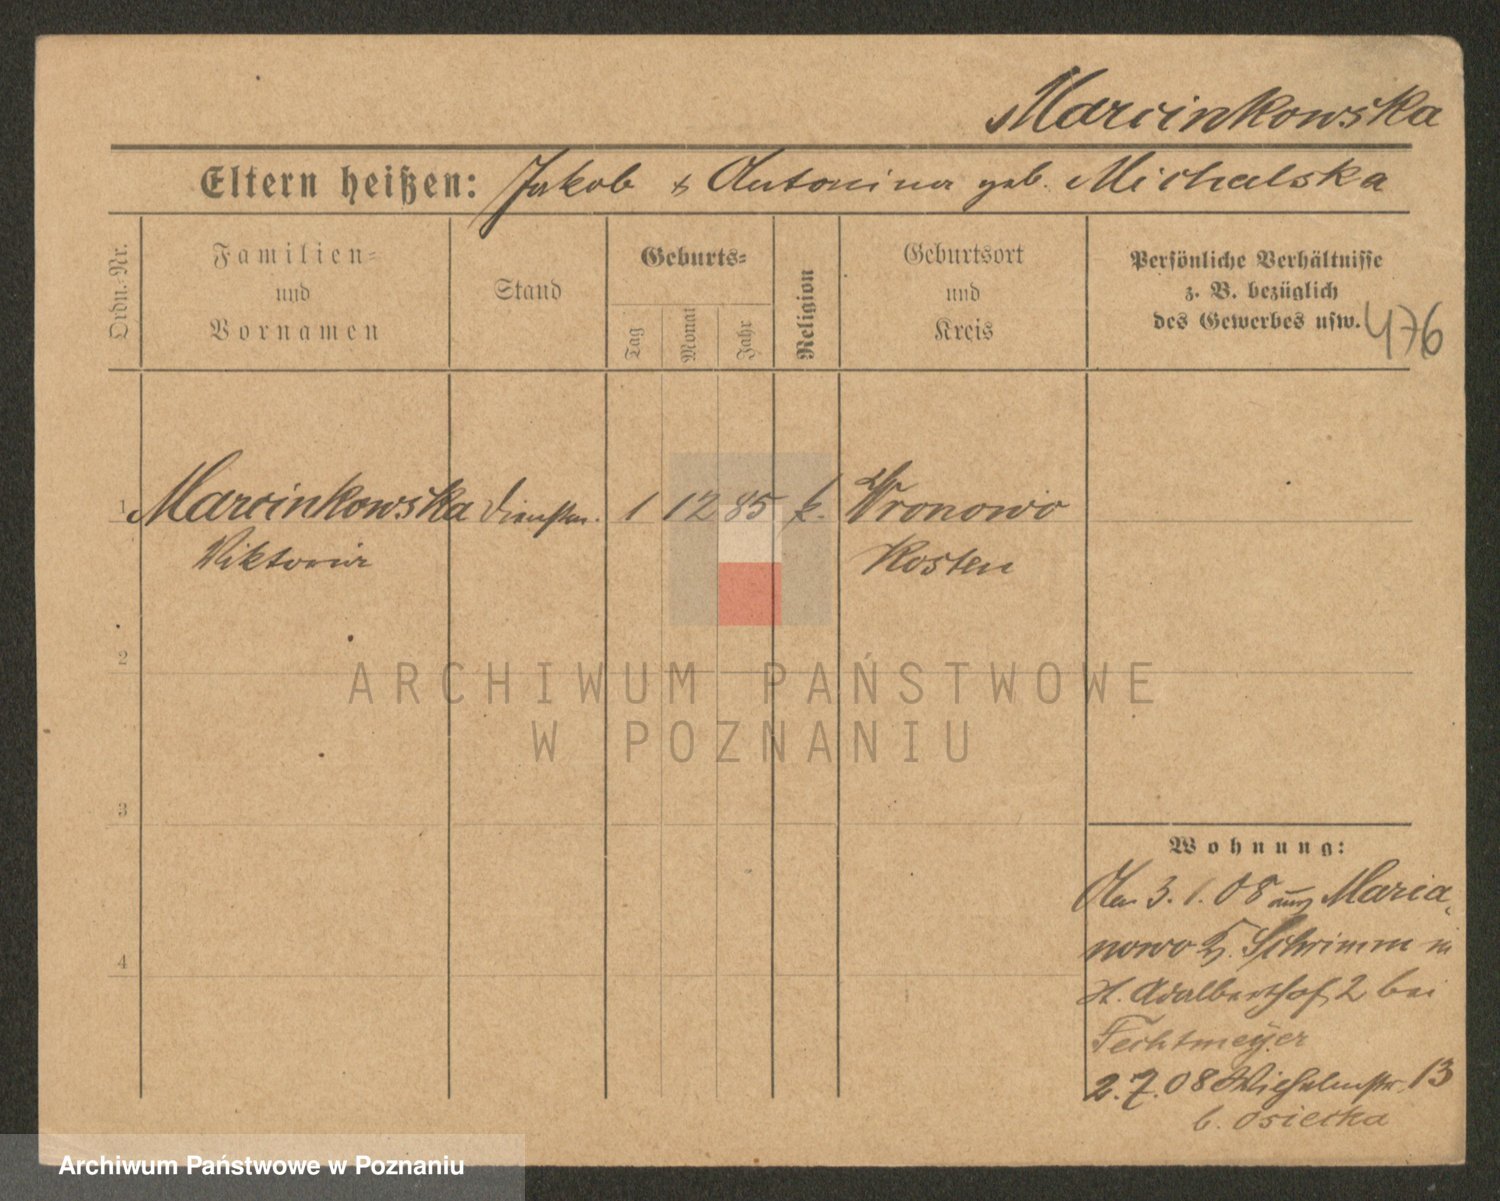 Marcinkowska
Eltern heißen: Jakob & Antonina geb. Michalska
Ordn.-Nr.
Familien=
und
Vornamen
Stand
Geburts=
Tag
Monat
Jahr
Religion
Geburtsort
und
Kreis
Persönliche Verhältnisse
z. B. bezüglich
des Gewerbes usw.
476
1 Marcinkowska Dienstm. 1 12 85 k. Wronowo
Viktoria Kosten
2
3
4
Wohnung:
3.1.08 aus Maria-
nowo Kr. Schrimm in
St. Adalberthof 2 bei
Fechtmeyer
2.7.08 Wilhelmstr. 13
b. Osiecka
ARCHIWUM PAŃSTWOWE
W POZNANIU
Archiwum Państwowe w Poznaniu